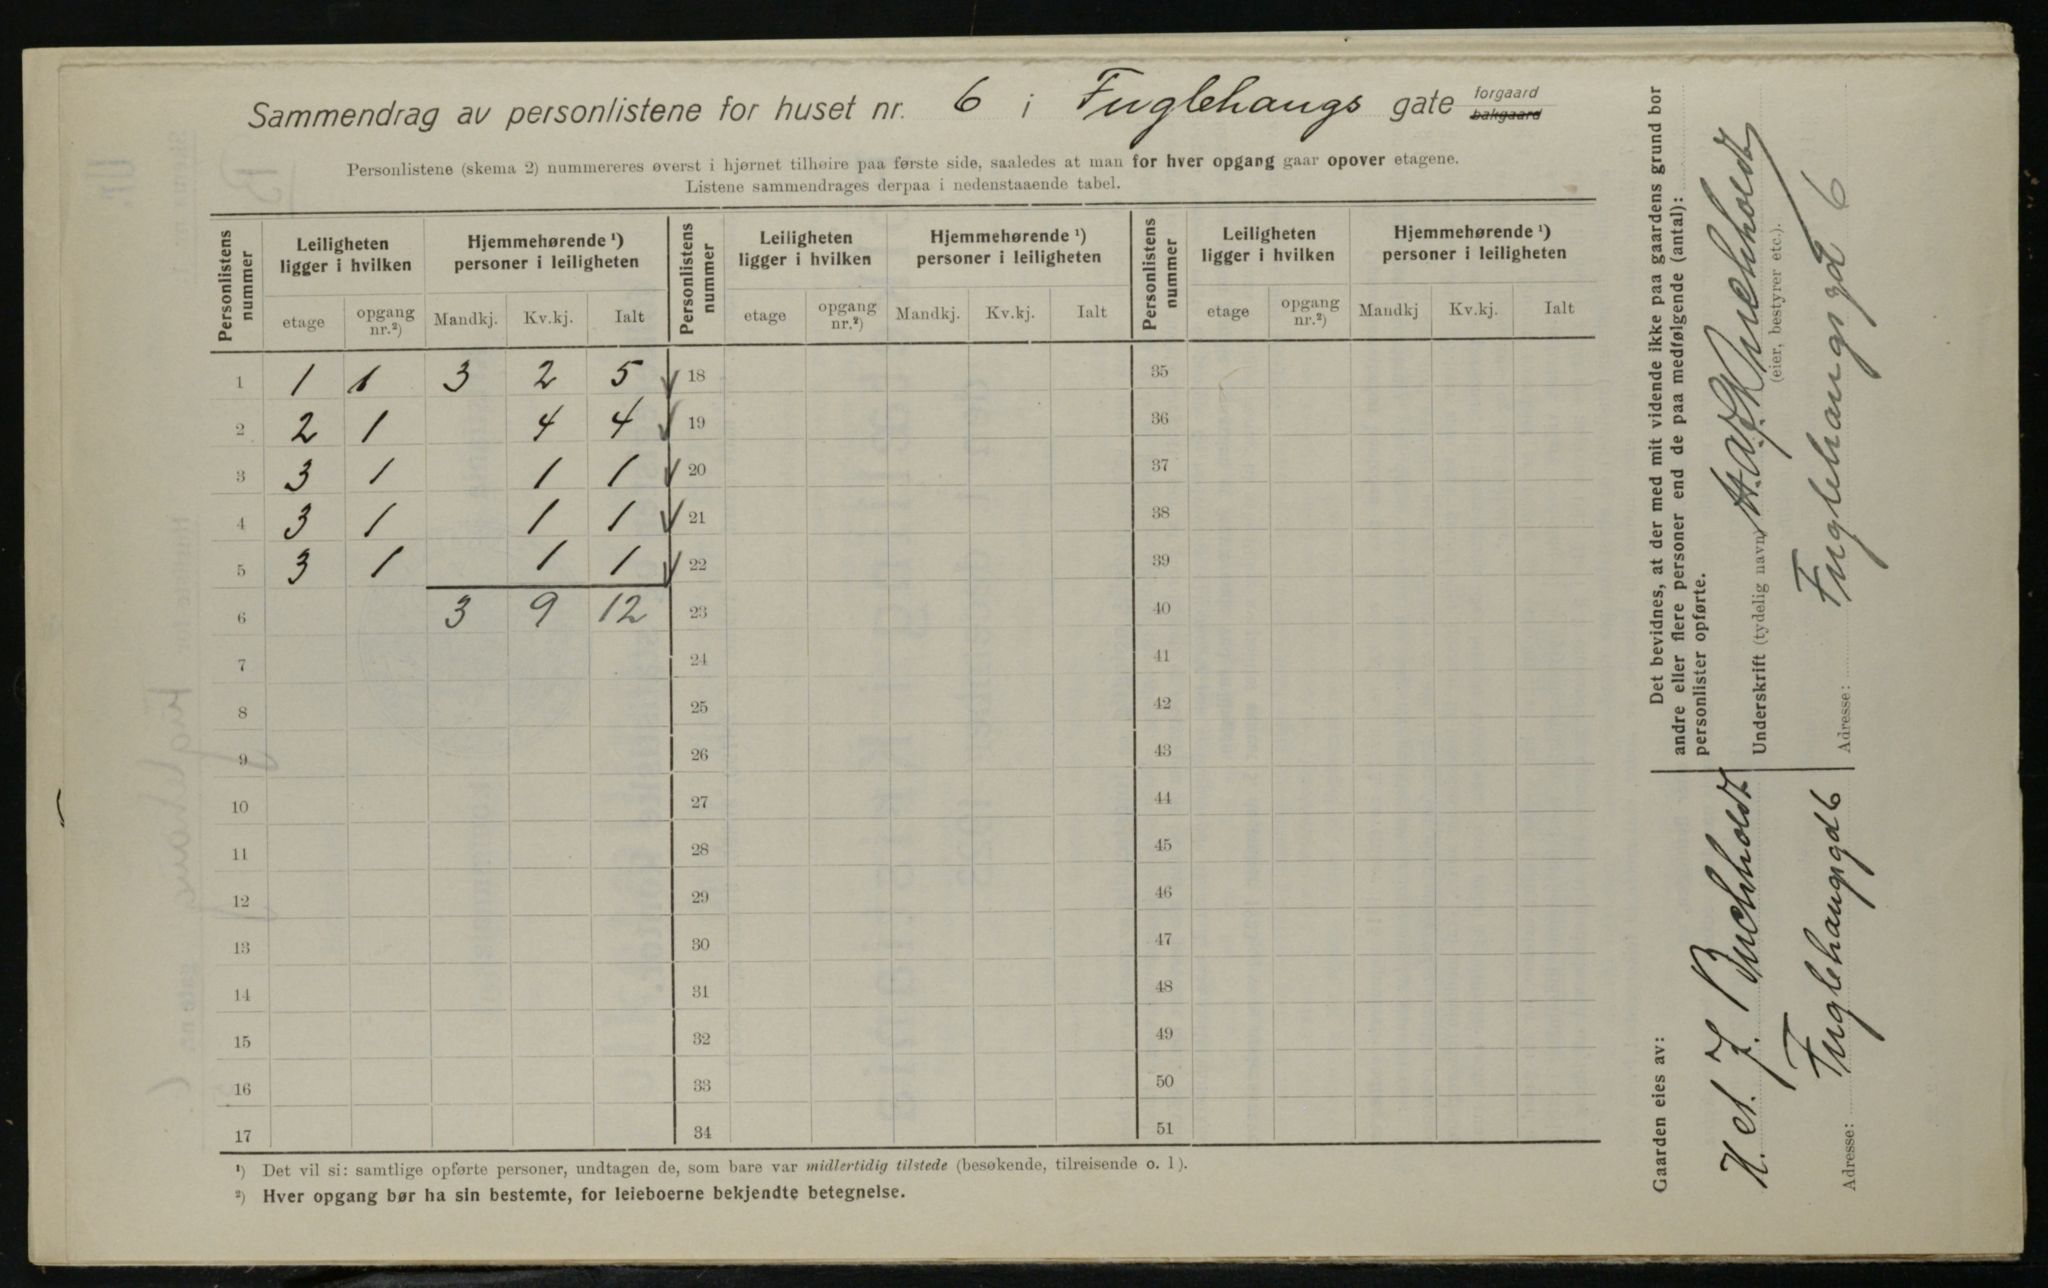 Sammendrag av personlistene for huset nr. 6 i Fuglehaugs gate forgaard
bakgaard
Personlistene (skema 2) nummereres øverst i hjørnet tilhøire paa første side, saaledes at man for hver opgang gaar opover etagene.
Listene sammendrages derpaa i nedenstaaende tabel.
Personlistens nummer | Leiligheten ligger i hvilken | Hjemmehørende ¹) personer i leiligheten | Personlistens nummer | Leiligheten ligger i hvilken | Hjemmehørende ¹) personer i leiligheten | Personlistens nummer | Leiligheten ligger i hvilken | Hjemmehørende ¹) personer i leiligheten
etage | opgang nr.²) | Mandkj. | Kv.kj. | Ialt | etage | opgang nr.²) | Mandkj. | Kv.kj. | Ialt | etage | opgang nr.²) | Mandkj | Kv.kj. | Ialt
1 1 1 3 2 5 18 35
2 2 1 4 4 19 36
3 3 1 1 1 20 37
4 3 1 1 1 21 38
5 3 1 1 1 22 39
6 3 9 12 23 40
7 24 41
8 25 42
9 26 43
10 27 44
11 28 45
12 29 46
13 30 47
14 31 48
15 32 49
16 33 50
17 34 51
¹) Det vil si: samtlige opførte personer, undtagen de, som bare var midlertidig tilstede (besøkende, tilreisende o. l).
²) Hver opgang bør ha sin bestemte, for leieboerne bekjendte betegnelse.
Det bevidnes, at der med mit vidende ikke paa gaardens grund bor
andre eller flere personer end de paa medfølgende (antal):
personlister opførte.
Underskrift (tydelig navn) Buchholdt
(eier, bestyrer etc.).
Adresse: Fuglehaugs gd 6
Gaarden eies av:
Buchholdt
Adresse: Fuglehaugsgd 6